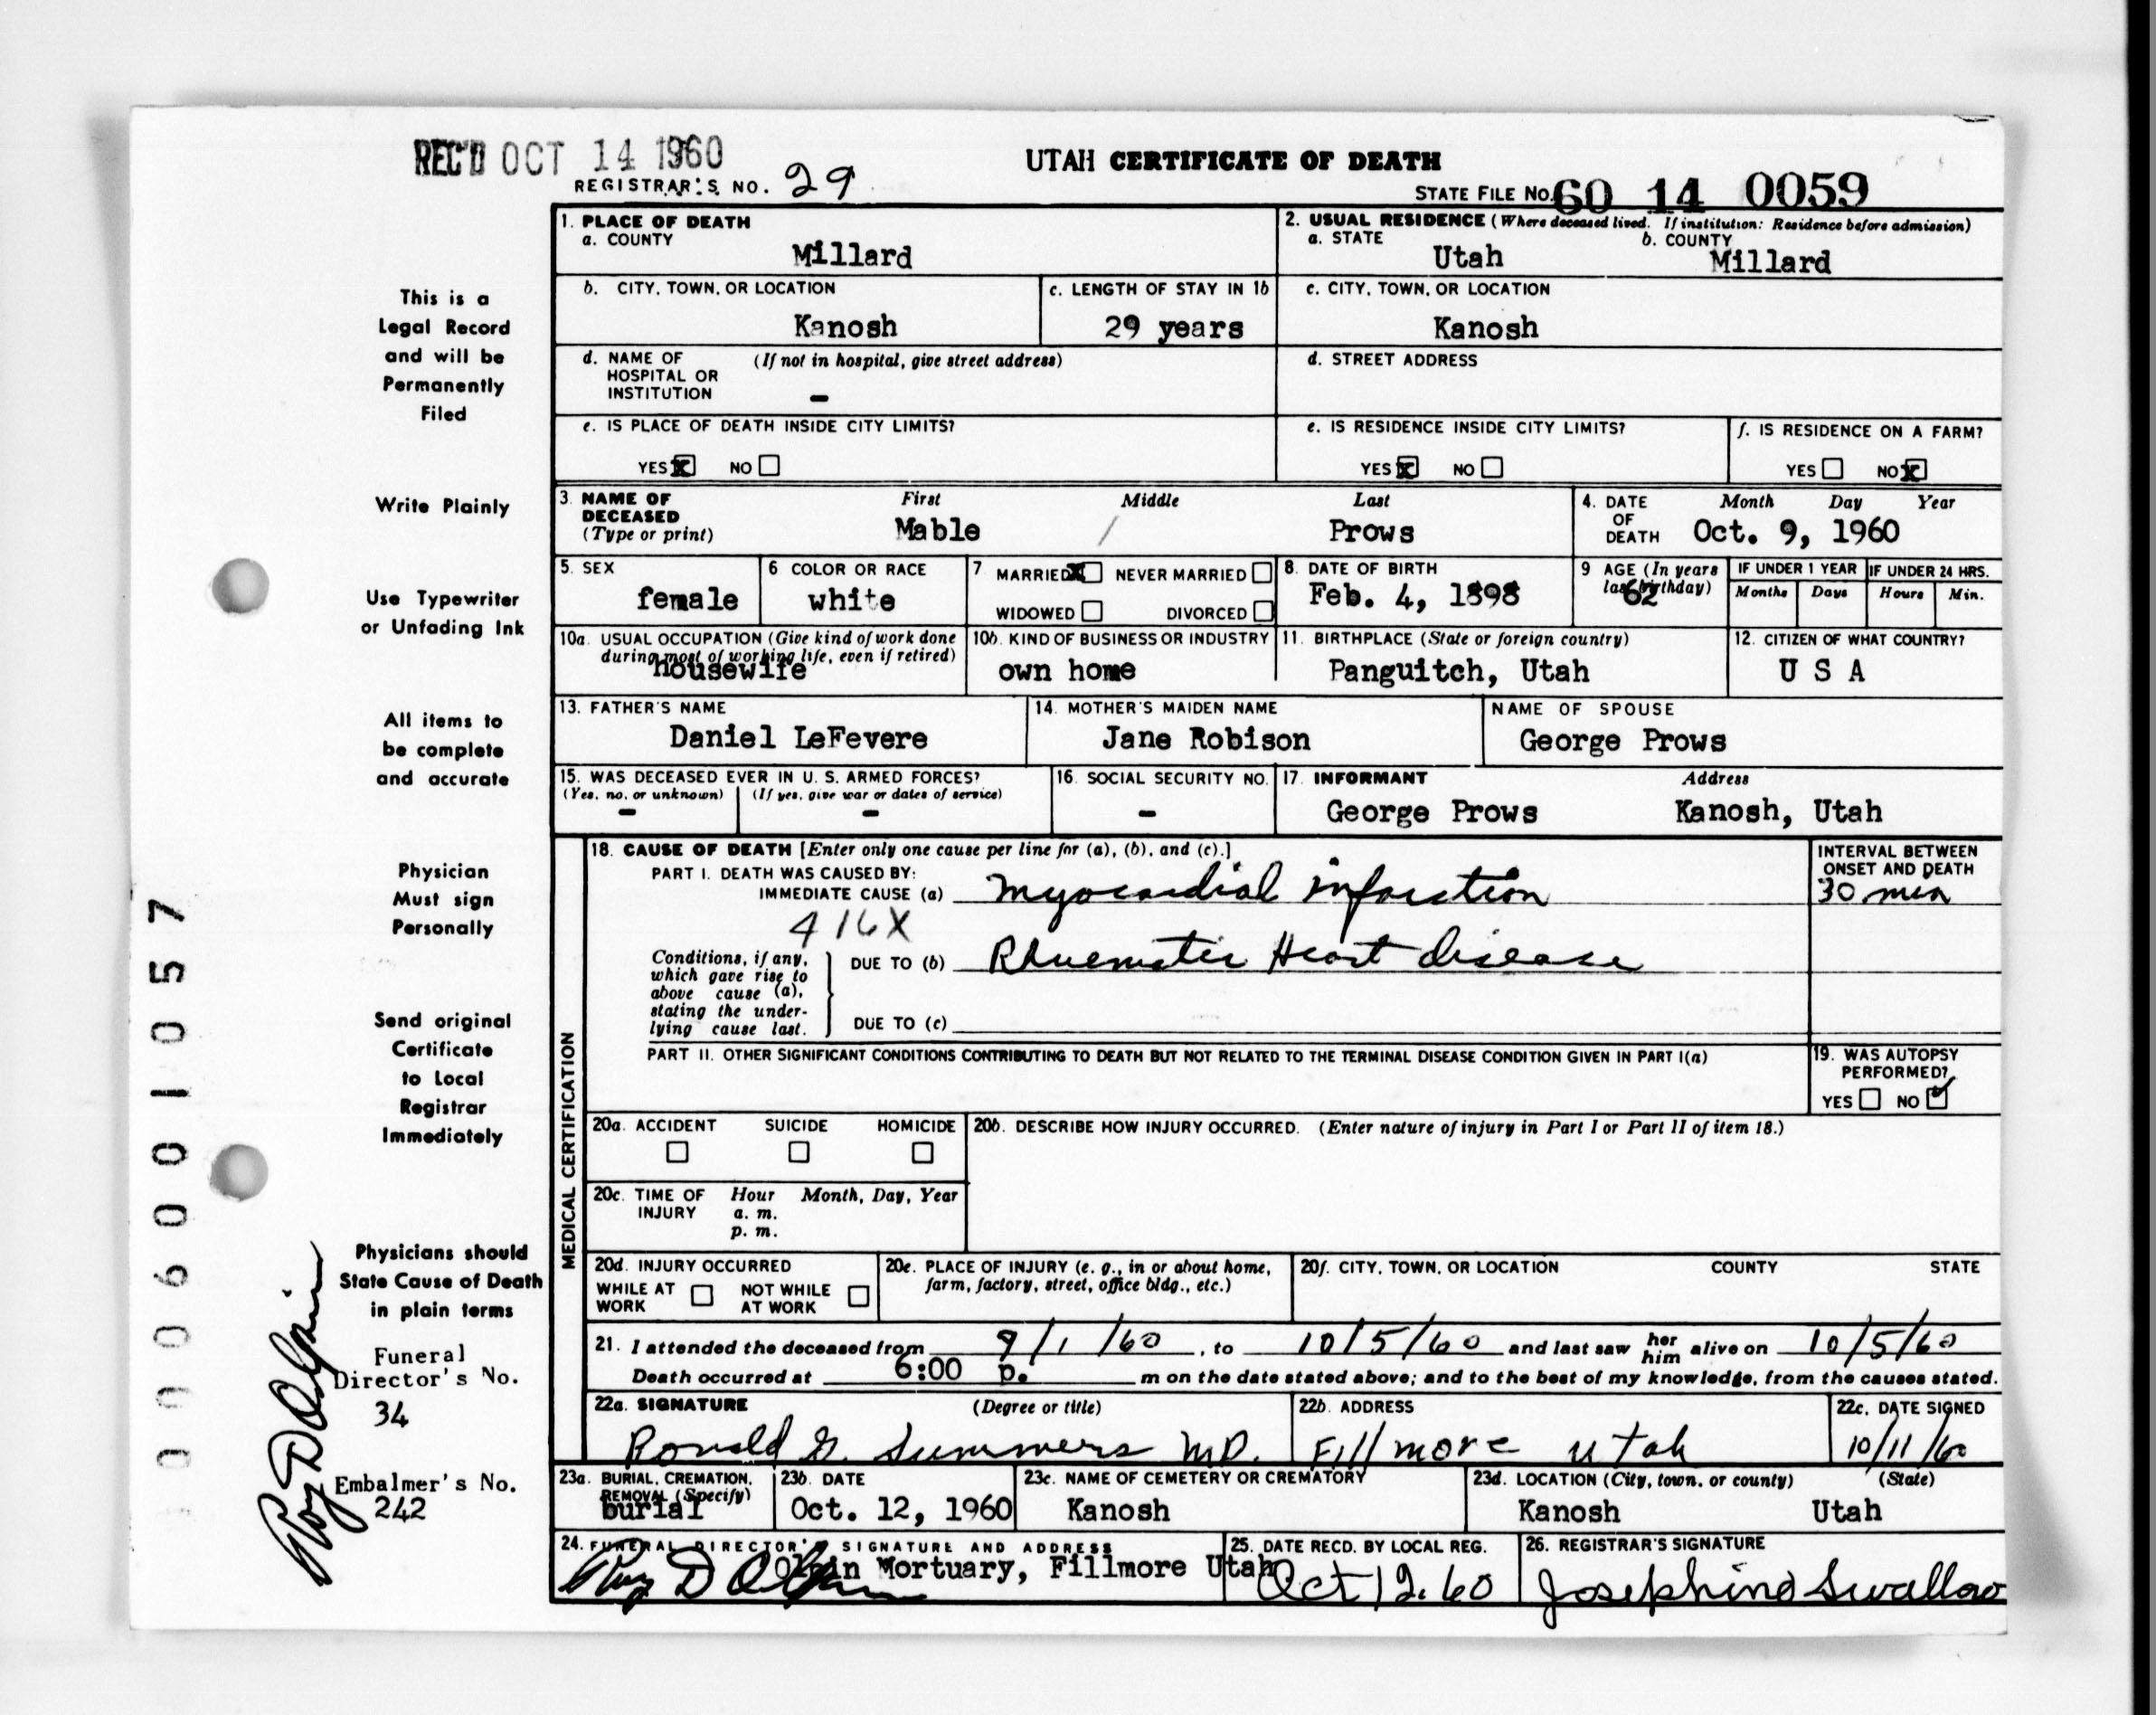 REC'D OCT 14 1960
REGISTRAR'S NO. 29
UTAH CERTIFICATE OF DEATH
STATE FILE NO. 60 14 0059
1. PLACE OF DEATH
a. COUNTY
Millard
2. USUAL RESIDENCE (Where deceased lived. If institution: Residence before admission)
a. STATE
Utah
b. COUNTY
Millard
b. CITY, TOWN, OR LOCATION
Kanosh
c. LENGTH OF STAY IN 1b
29 years
c. CITY, TOWN, OR LOCATION
Kanosh
d. NAME OF HOSPITAL OR INSTITUTION
(If not in hospital, give street address)
-
d. STREET ADDRESS
e. IS PLACE OF DEATH INSIDE CITY LIMITS?
YES x NO
e. IS RESIDENCE INSIDE CITY LIMITS?
YES x NO
f. IS RESIDENCE ON A FARM?
YES NO x
3. NAME OF DECEASED
(Type or print)
First Middle Last
Mable / Prows
4. DATE OF DEATH
Month Day Year
Oct. 9, 1960
5. SEX
female
6 COLOR OR RACE
white
7 MARRIED x NEVER MARRIED
WIDOWED DIVORCED
8. DATE OF BIRTH
Feb. 4, 1898
9 AGE (In years last birthday)
62
IF UNDER 1 YEAR
Months Days
IF UNDER 24 HRS.
Hours Min.
10a. USUAL OCCUPATION (Give kind of work done during most of working life, even if retired)
housewife
10b. KIND OF BUSINESS OR INDUSTRY
own home
11. BIRTHPLACE (State or foreign country)
Panguitch, Utah
12. CITIZEN OF WHAT COUNTRY?
U S A
13. FATHER'S NAME
Daniel LeFevere
14. MOTHER'S MAIDEN NAME
Jane Robison
NAME OF SPOUSE
George Prows
15. WAS DECEASED EVER IN U. S. ARMED FORCES?
(Yes, no, or unknown) (If yes, give war or dates of service)
- -
16. SOCIAL SECURITY NO.
-
17. INFORMANT Address
George Prows Kanosh, Utah
MEDICAL CERTIFICATION
18. CAUSE OF DEATH [Enter only one cause per line for (a), (b), and (c).]
INTERVAL BETWEEN ONSET AND DEATH
PART I. DEATH WAS CAUSED BY:
IMMEDIATE CAUSE (a) Myocardial infarction
30 min
416X
Conditions, if any, which gave rise to above cause (a), stating the underlying cause last.
DUE TO (b) Rhuematic Heart disease
DUE TO (c)
PART II. OTHER SIGNIFICANT CONDITIONS CONTRIBUTING TO DEATH BUT NOT RELATED TO THE TERMINAL DISEASE CONDITION GIVEN IN PART I(a)
19. WAS AUTOPSY PERFORMED?
YES NO ✓
20a. ACCIDENT SUICIDE HOMICIDE
20b. DESCRIBE HOW INJURY OCCURRED. (Enter nature of injury in Part I or Part II of item 18.)
20c. TIME OF INJURY
Hour Month, Day, Year
a. m.
p. m.
20d. INJURY OCCURRED
WHILE AT WORK NOT WHILE AT WORK
20e. PLACE OF INJURY (e. g., in or about home, farm, factory, street, office bldg., etc.)
20f. CITY, TOWN, OR LOCATION COUNTY STATE
21. I attended the deceased from 9/1/60, to 10/5/60 and last saw her him alive on 10/5/60
Death occurred at 6:00 p. m on the date stated above; and to the best of my knowledge, from the causes stated.
22a. SIGNATURE (Degree or title)
Ronald G. Summers MD.
22b. ADDRESS
Fillmore Utah
22c. DATE SIGNED
10/11/60
23a. BURIAL, CREMATION, REMOVAL (Specify)
burial
23b. DATE
Oct. 12, 1960
23c. NAME OF CEMETERY OR CREMATORY
Kanosh
23d. LOCATION (City, town, or county) (State)
Kanosh Utah
24. FUNERAL DIRECTOR'S SIGNATURE AND ADDRESS
Roy D Olpin
Olpin Mortuary, Fillmore Utah
25. DATE RECD. BY LOCAL REG.
Oct 12. 60
26. REGISTRAR'S SIGNATURE
Josephine Swallow
This is a
Legal Record
and will be
Permanently
Filed
Write Plainly
Use Typewriter
or Unfading Ink
All items to
be complete
and accurate
Physician
Must sign
Personally
Send original
Certificate
to Local
Registrar
Immediately
Physicians should
State Cause of Death
in plain terms
Funeral
Director's No.
34
Embalmer's No.
242
Roy D Olpin
1 0 0 6 0 0 1 0 5 7